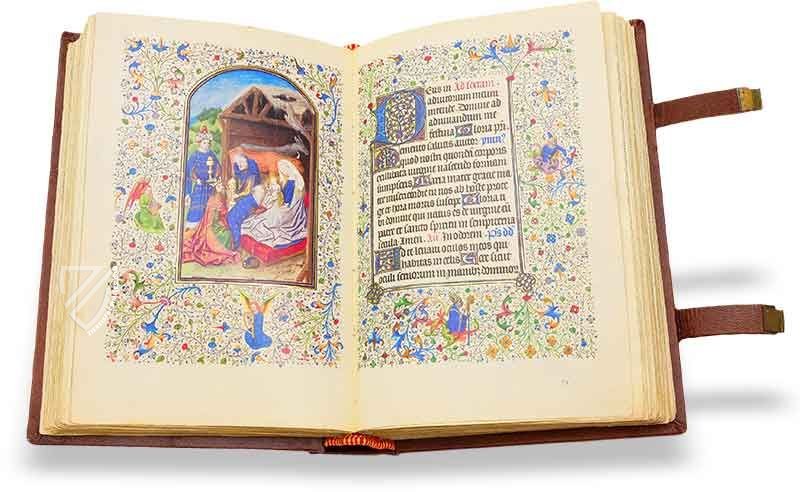 Deus in Ad sextam
adiutorium meum
intende Domine ad
adiuuandum me
festina Gloria pri
Memento salutis auctor ymnus
quod nostri quondam corporis
ex illibata virgine nascendo formam
sumpseris Maria mater gratie ma
ter misericordie tu nos ab hoste prote
ge et hora mortis suscipe Gloria ti
bi domine qui natus es de virgine cu
patre et sancto spiritu in sempiterna
secula Amen An In odorem Ps dd
Ad te leuaui oculos meos qui
habitas in celis Ecce sicut
oculi seruorum in manibus dominorum